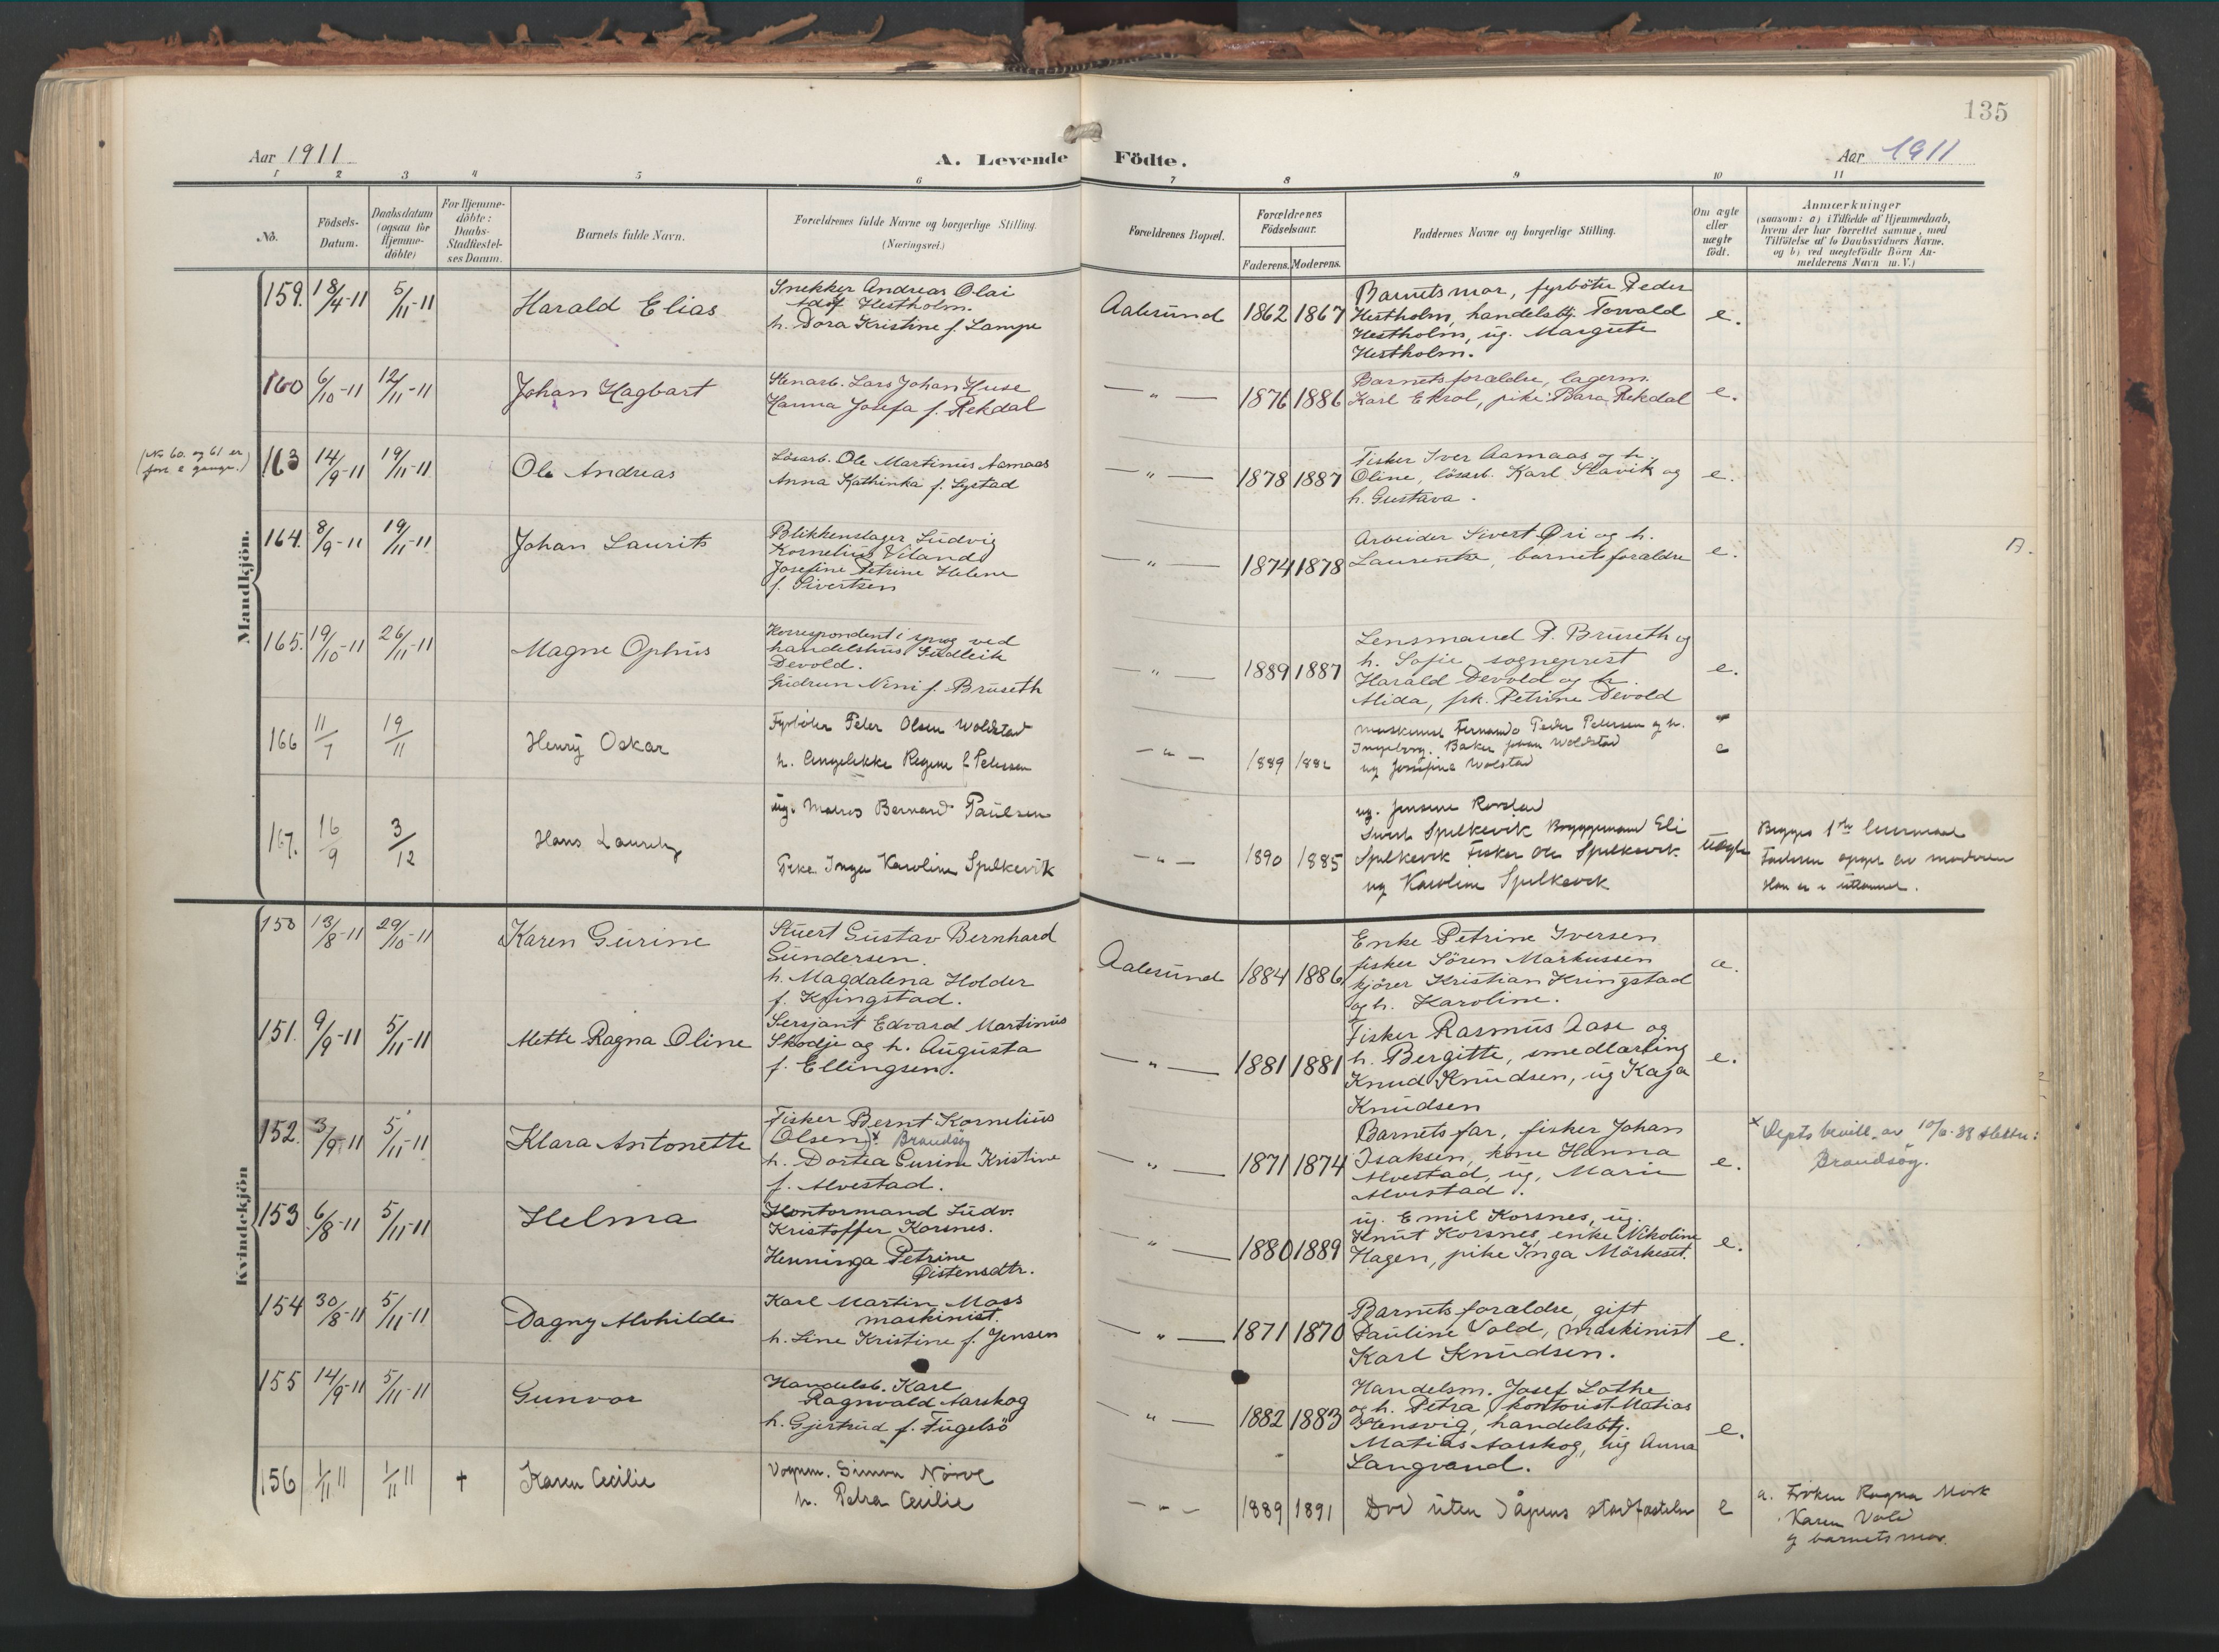 135
Aar 1911
A. Levende Födte.
Aar 1911
1 2 3 4 5 6 7 8 9 10 11
No.
Födsels-
Datum.
Daabsdatum
(ogsaa for
Hjemme-
döbte)
For Hjemme-
döbte:
Daabs-
Stadfæstel-
ses Datum.
Barnets fulde Navn.
Forældrenes fulde Navne og borgerlige Stilling.
(Næringsvei.)
Forældrenes Bopæl.
Forældrenes
Födselsaar.
Faderens. Moderens.
Faddernes Navne og borgerlige Stilling.
Om ægte
eller
uægte
födt.
Anmærkninger
(saasom: a) i Tilfælde af Hjemmedaab,
hvem der har forrettet samme, med
Tilföielse af to Daabsvidners Navne,
og b) ved uægtefödte Börn An-
melderens Navn m. V.)
Mandkjön.
159. 18/4-11 5/11-11 Harald Elias
Snekker Andreas Olai
Adolf Hestholm.
h. Dora Kristine f. Lampe
Aalesund 1862 1867
Barnets mor, fyrböter Peder
Hestholm, handelsbtj. Torvald
Hestholm, ug. Margrete
Hestholm.
e.
160 6/10-11 12/11-11 Johan Hagbart
Stenarb. Lars Johan Huse
Hanna Josefa f. Rekdal
— " — 1876 1886
Barnets forældre, lagerm.
Karl Ekrol, pike Bara Rekdal
e.
(No 60. og 61 er
fört 2 gange.)
163 14/9-11 19/11-11 Ole Andreas
Lösarb. Ole Martinus Aamaas
Anna Kathinka f. Systad
— " — 1878 1887
Fisker Iver Aamaas og h.
Oline, lösarb. Karl Slavik og
h. Gustava.
e.
164. 8/9-11 19/11-11 Johan Laurits
Blikkenslager Ludvig
Kornelius Viland
Josefine Petrine Helene
f. Sivertsen
— " — 1874 1878
Arbeider Sivert Øri og h.
Laurentse, barnets forældre
e.
165. 19/10-11 26/11-11 Magne Ophus
Korrespondent i sprog ved
handelshus Gudleik
Devold.
Gudrun Nini f. Bruseth
— " — 1889 1887
Lensmand P. Bruseth og
h. Sofie, sogneprest
Harald Devold og h.
Alida, frk. Petrine Devold
e.
166 11/7 19/11 Henry Oskar
Fyrböter Peter Olsen Woldstad
h. Angelikke Regine f Petersen
— " — 1889
Ingeborg. Baker Johan Woldstad
ug Josefine Wolstad
e
167. 16/9 3/12 Hans Lauritz
ug. Matros Bernard Paulsen
Pike Inga Karoline Spilkevik
— " — 1890 1885
ug. Jensine
Sivert Spilkevik Bryggemand Eli
Spilkevik Fisker Ole Spilkevik
ug Karoline Spilkevik
uægte
Begges 1ste leiermaal
Faderen opgit av moderen
Han er i utlandet.
Kvindekjön
150 13/8-11 29/10-11 Karen Gurine
Stuert Gustav Bernhard
Gundersen.
h. Magdalena Holder
f. Kringstad.
Aalesund 1884 1886
Enke Petrine Iversen
fisker Sören Markussen
kjörer Kristian Kringstad
og h. Karoline.
e.
151. 9/9-11 5/11-11 Mette Ragna Oline
Sersjant Edvard Martinus
Skodje og h. Augusta
f. Ellingsen.
— " — 1881 1881
Fisker Rasmus Aase og
h. Bergitte, smedlærling
Knud Knudsen, ug Kaja
Knudsen
e.
152. 3/9-11 5/11-11 Klara Antonette
Fisker Bernt Kornelius
Olsen) x Brandsøy
h. Dortea Gurine Kristine
f. Alvestad.
— " — 1871 1874
Barnets far, fisker Johan
Isaksen, kone Hanna
Alvestad, ug. Marie
Alvestad.
e.
x Depts bevill. av
Brandsøy.
153 6/8-11 5/11-11 Helma
Kontormand Ludv.
Kristoffer Korsnes.
Henninga Petrine
Øistensdtr.
— " — 1880 1889
ug. Emil Korsnes, ug.
Knut Korsnes, enke Nikoline
Hagen, pike Inga Mörkeset.
e.
154 30/8-11 5/11-11 Dagny Alvhilde
Karl Martin Moss
maskinist.
h. Line Kristine f. Jensen
— " — 1871 1870
Barnets forældre, gift
Pauline Vold, maskinist
Karl Knudsen.
e.
155 14/9-11 5/11-11 Gunvor
Handelsb. Karl
Ragnvald Aarskog
h. Gjertrud f. Fugelsö
— " — 1882 1883
Handelsm. Josef Lothe
og h. Petra, kontorist Matias
Stensvig, handelsbtj.
Matias Aarskog, ug Anna
Langvand.
e.
156 1/11 11 1/11 11 + Karen Cecilie
Vognm. Simon Nörve
h. Petra Cecilie
— " — 1889 1891
Död uten daapens stadfæstelse
e
a. Fröken Ragna Mörk
Karen Vold
og barnets mor.